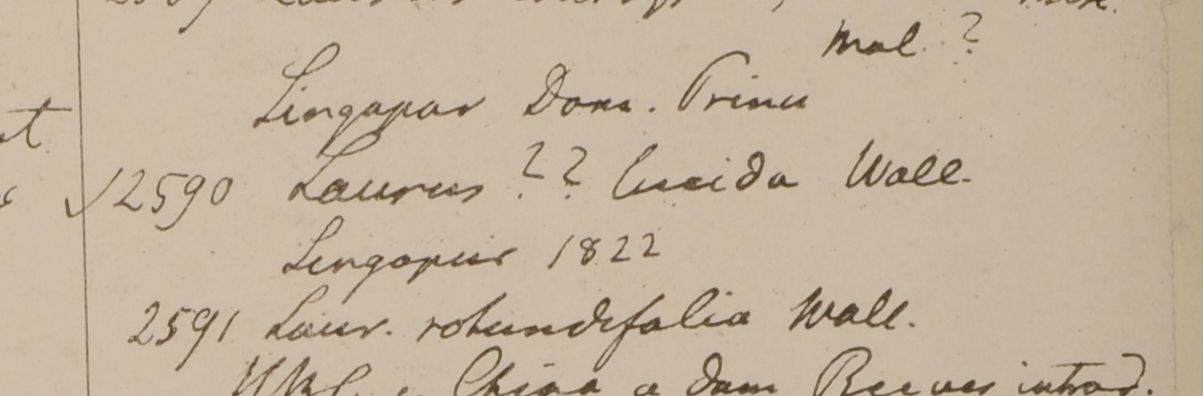 Mal. ?
Singapur Dom. Prince
✓2590 Laurus ?? lucida Wall.
Singapur 1822
2591 Laur. rotundifolia Wall.
HBC. e China a dom Reeves introd.